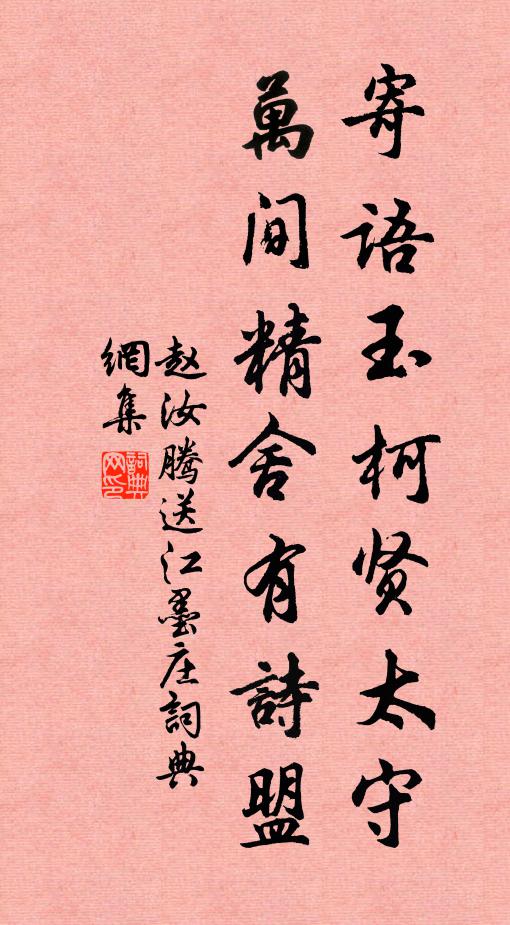 寄语玉柯贤太守
萬间精舍有詩盟
赵汝腾送江墨庄詞典
網集
詞典网印